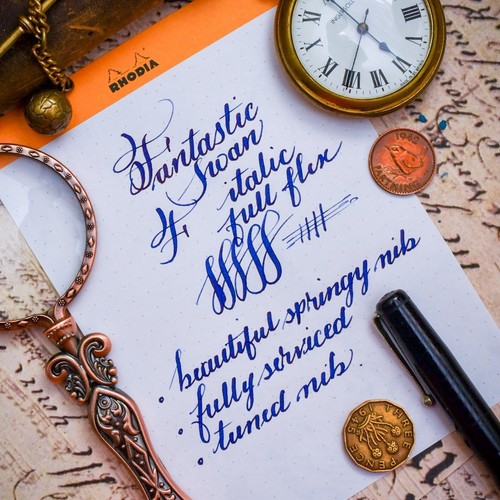 RHODIA
Fantastic
Swan
italic
F full flex
• beautiful springy nib
• fully serviced
• tuned nib.
FARTHING
THREE PENCE